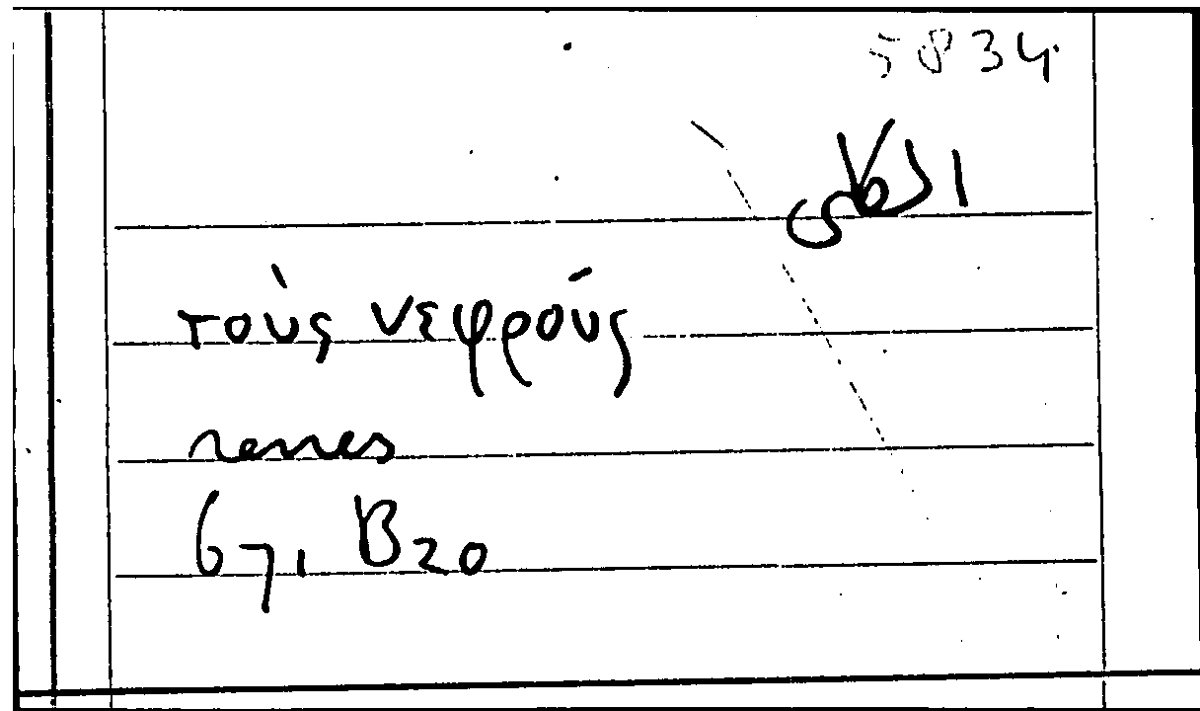 5834
الكلى
τοὺς νεφρούς
renes
671 B20